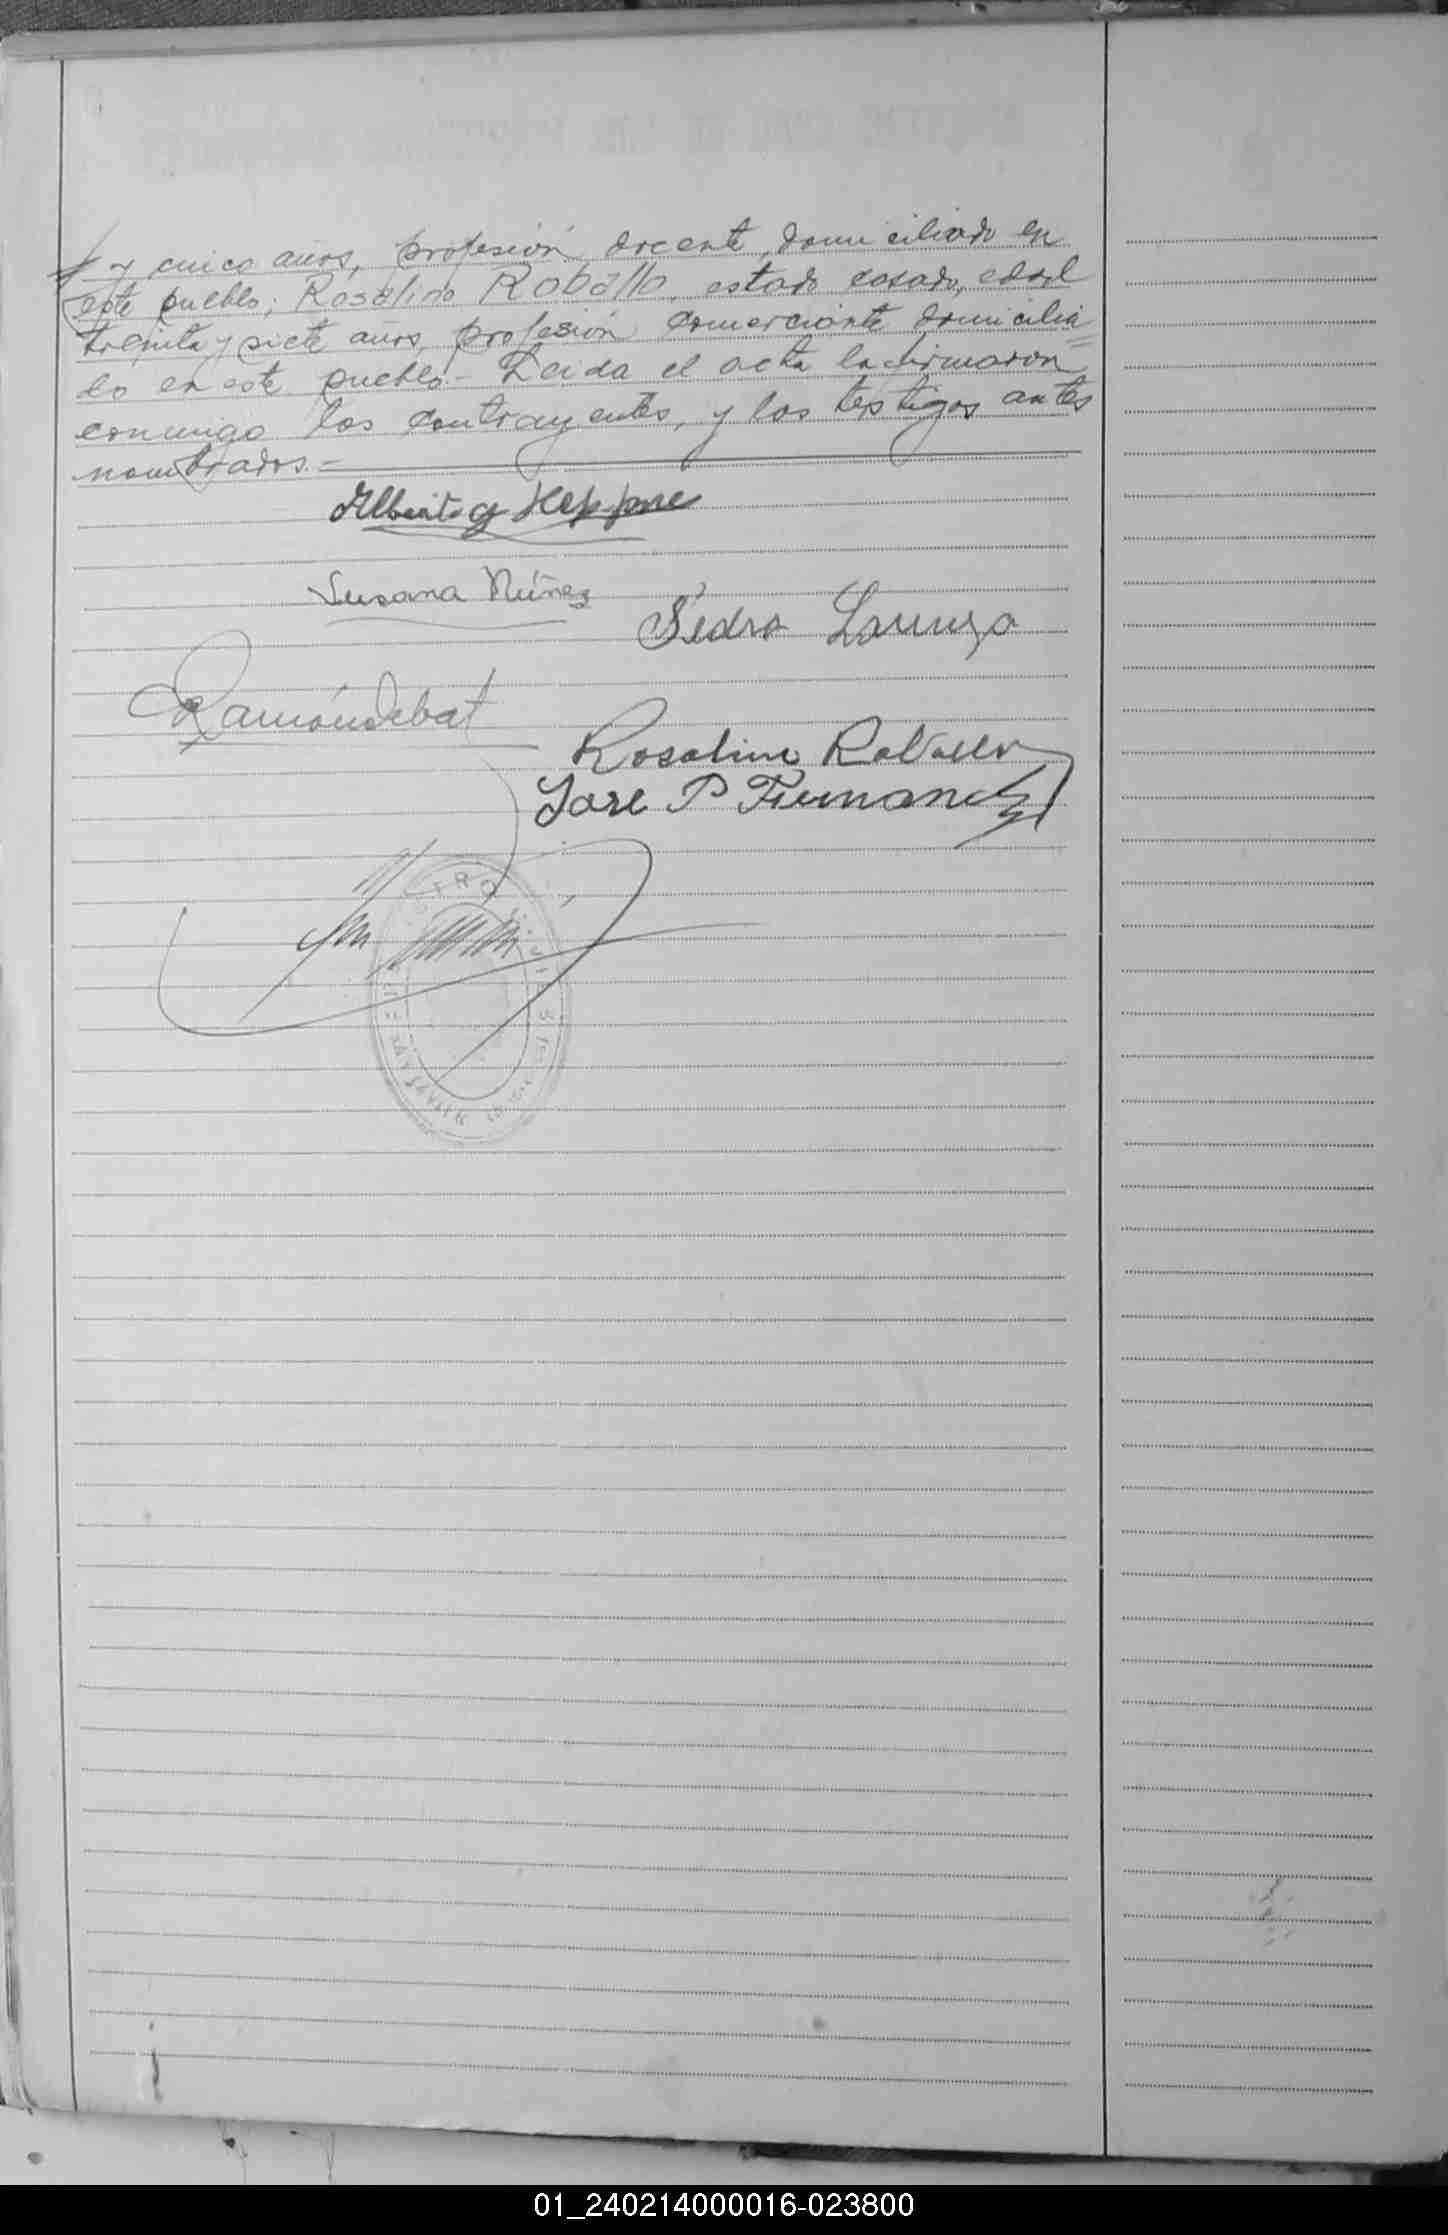 y cinco años, profesión docente, domiciliado en
este pueblo; Rosalino Roballo, estado casado, edad
treinta y siete años, profesión comerciante domicilia=
do en este pueblo.- Leida el acta la firmaron
conmigo los contrayentes, y los testigos antes
nombrados.=
Alberto G Heppne
Susana Núñez
Pedro Lorenzo
Ramón Debat
Rosalino Roballo
Jose P Fernandez
01_240214000016-023800